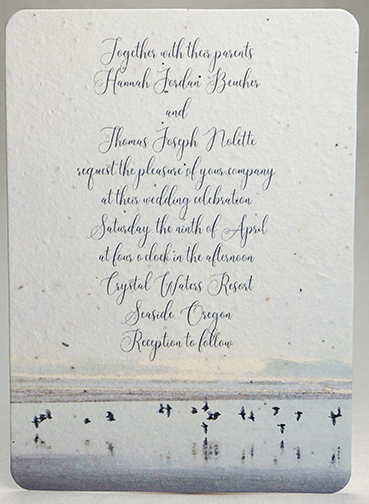 Together with their parents
Hannah Jordan Beucher
and
Thomas Joseph Nolitte
request the pleasure of your company
at their wedding celebration
Saturday the ninth of April
at four o'clock in the afternoon
Crystal Waters Resort
Seaside, Oregon
Reception to follow